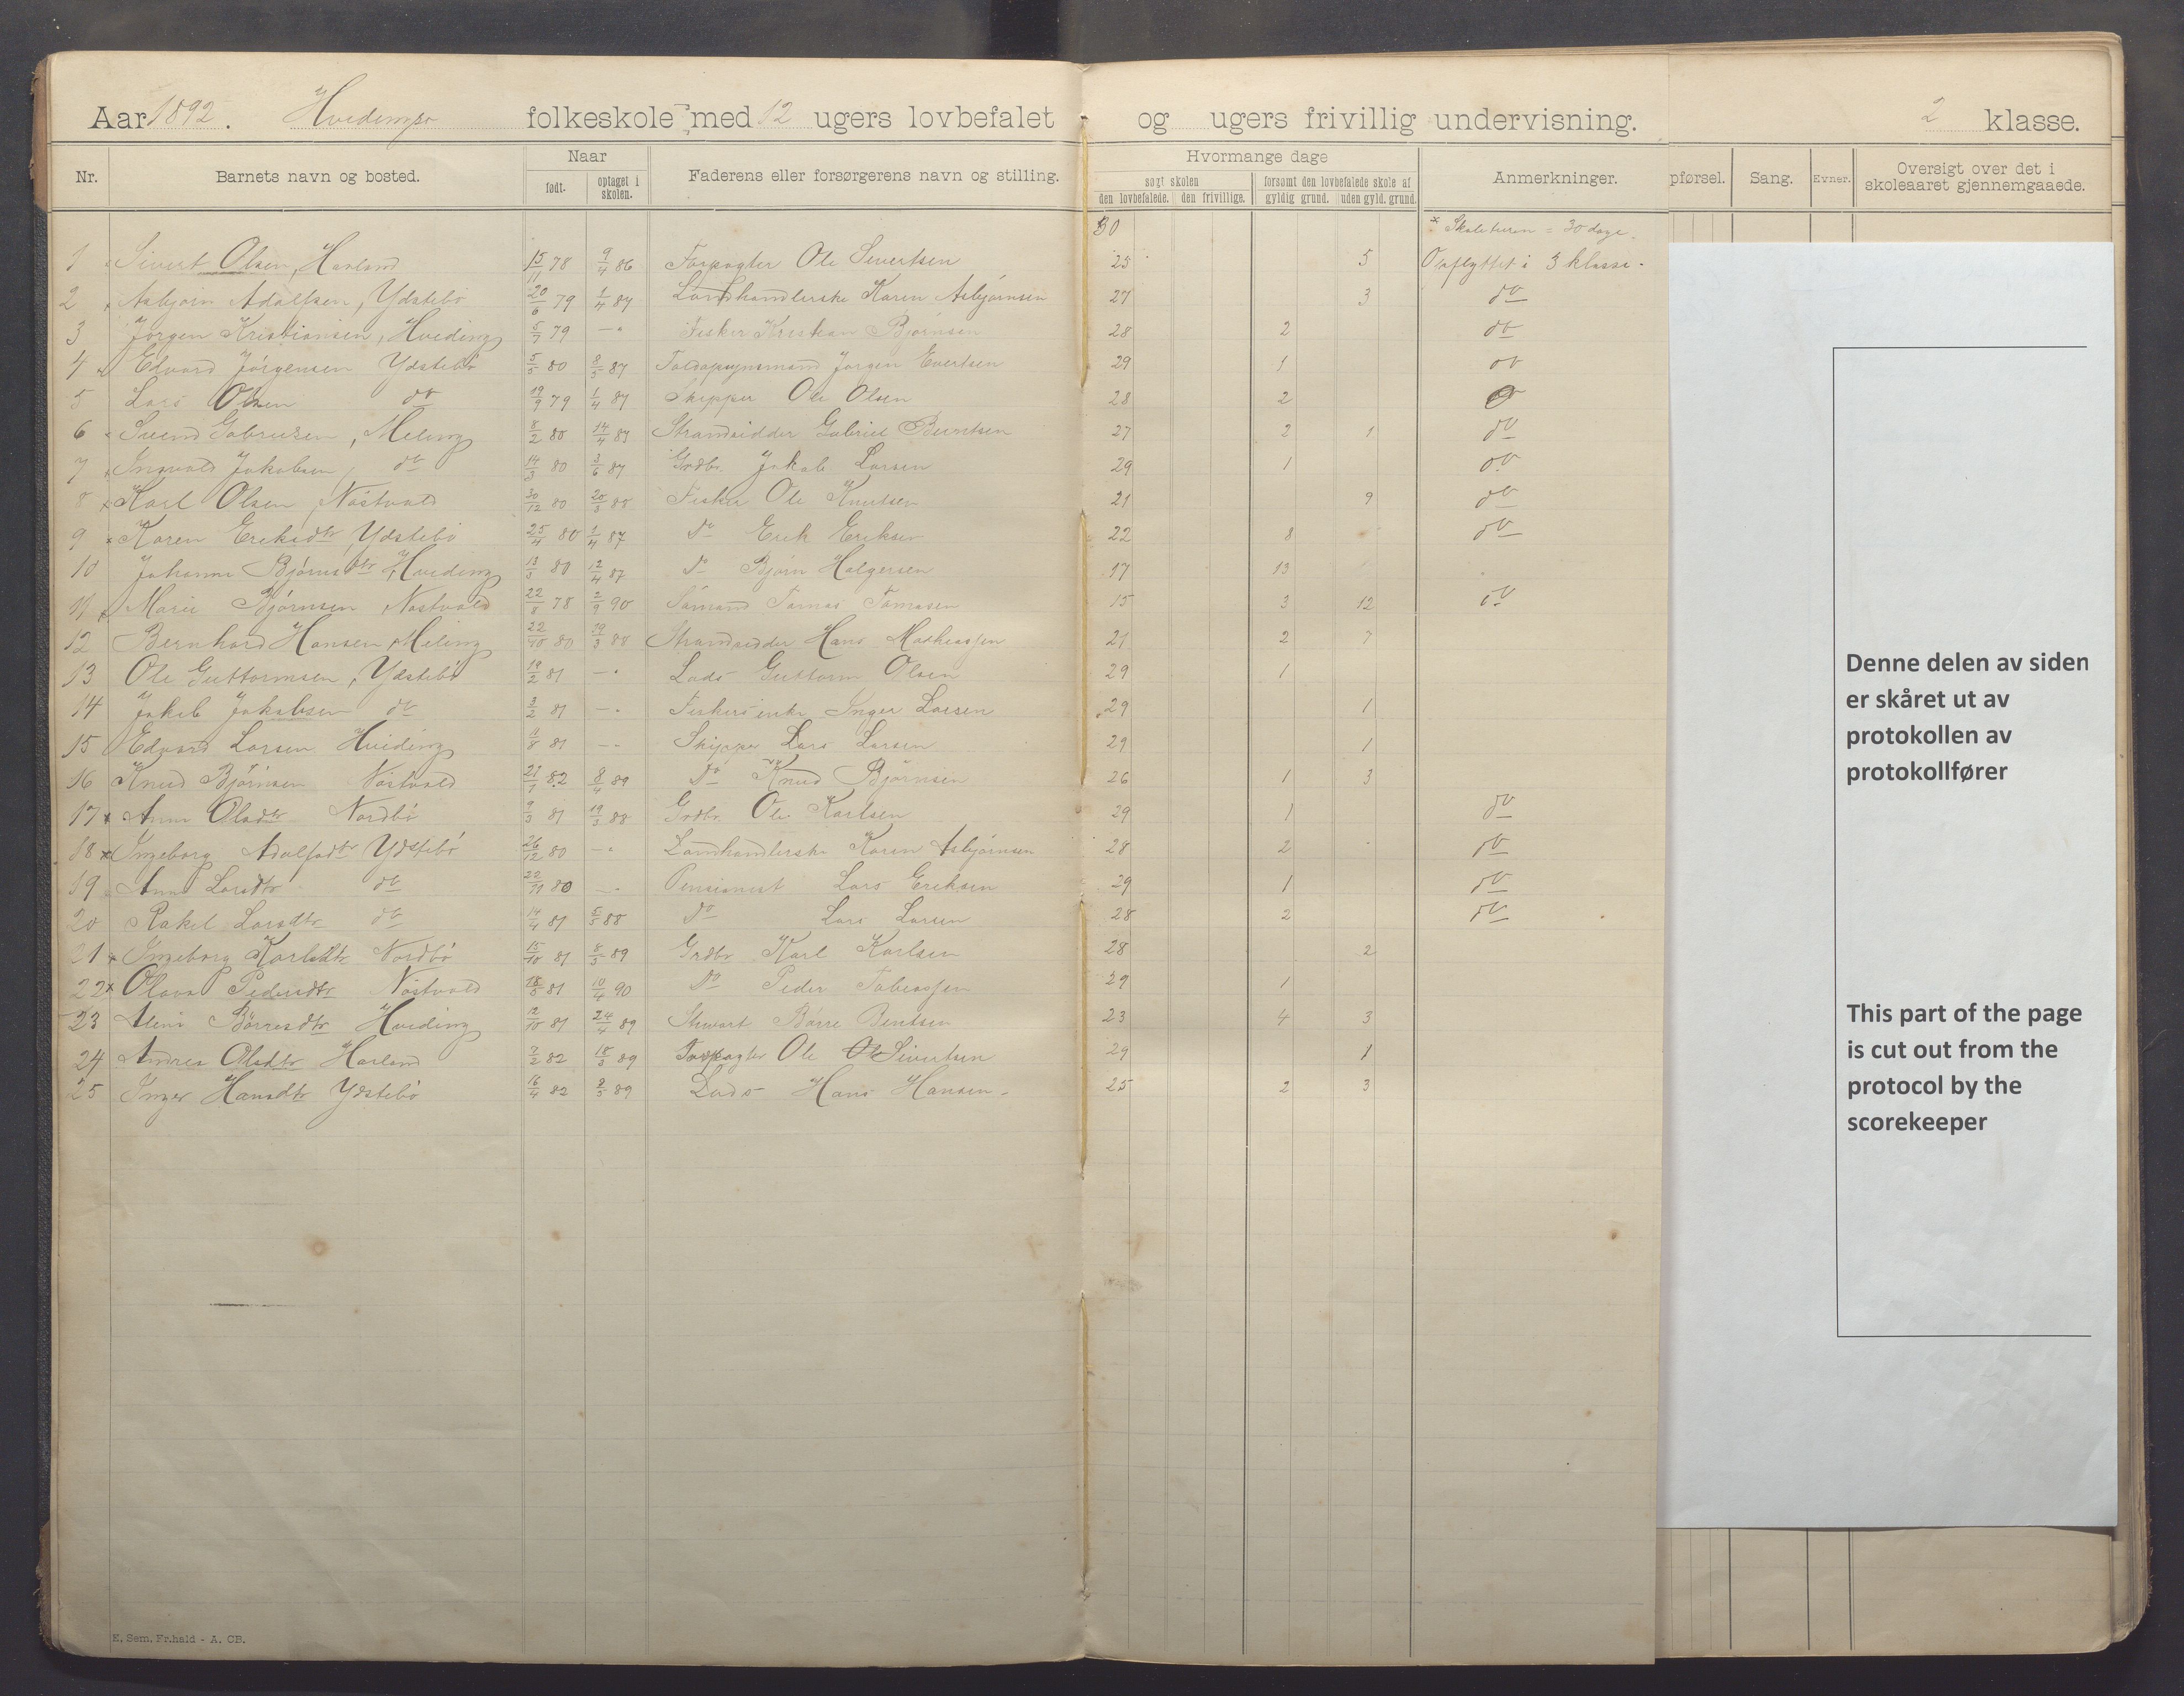 Aar 1892. folkeskole med 12 ugers lovbefalet og ugers frivillig undervisning. 2 klasse.
Nr. Barnets navn og bosted. Naar født. optaget i skolen. Faderens eller forsørgerens navn og stilling. Hvormange dage søgt skolen den lovbefalede. den frivillige. forsømt den lovbefalede skole af gyldig grund. uden gyld. grund. Anmerkninger. pførsel. Sang. Evner. Oversigt over det i skoleaaret gjennemgaaede.
30 * Skoleturen = 30 dage.
1 Sivert Olsen, Harland 15/11 78 9/4 86 Forpagter Ole Sivertsen 25 5 Opflyttet i 3 klasse.
2 Asbjørn Adolfsen, Ydstebø 20/6 79 1/4 87 Landhandlerske Karen Asbjørnsen 27 3 do
3 Jørgen Kristiansen, Hviding 5/7 79 — " Fisker Kristian Bjørnsen 28 2 do
4 Edvard Jørgensen Ydstebø 5/5 80 8/3 87 Toldopsynsmand Jørgen Evertsen 29 1 do
5 Lars Olsen do 19/9 79 1/4 87 Skipper Ole Olsen 28 2
6 Svend Gabrielsen, Meling 8/2 80 14/4 87 Strandsidder Gabriel 27 2 1 do
7 Ingvald Jakobsen, do 14/3 80 3/6 87 Grdbr. Jakob Larsen 29 1 do
8 Karl Olsen Nøstvold 30/12 80 20/3 88 Fisker Ole Knudsen 21 9 do
9 Karen Eriksdtr, Ydstebø 25/4 80 1/4 87 Do Erik Eriksen 22 8 do
10 Johanne Bjørnsdtr, Hviding 13/3 80 12/4 87 Do Bjørn Holgersen 17 13
11 Marie Bjørnsen Nøstvold 22/8 78 2/9 90 Sømand Tomas Tomasen 15 3 12 do
12 Bernhard Hansen, Meling 22/10 80 19/3 88 Strandsidder Hans Mathiassen 21 2 7
13 Ole Guttormsen, Ydstebø 19/2 81 — " Lods Guttorm Olsen 29 1
14 Jakob Jakobsen do 3/2 81 — " Fiskersenke Inger Larsen 29 1
15 Edvard Larsen Hviding 11/8 81 — " Skipper Lars Larsen 29 1
16 Knud Bjørnsen Nøstvold 21/1 82 8/4 89 Do Knud Bjørnsen 26 1 3
17 Anna Olsdtr Nordbø 9/3 81 19/3 88 Grdbr. Ole Karlsen 29 1 do
18 Ingeborg Adolfsdtr Ydstebø 26/12 80 — " Landhandlerske Karen Asbjørnsen 28 2 do
19 Anna Larsdtr do 22/11 80 — " Pensionist Lars Eriksen 29 1 do
20 Rakel Larsdtr do 14/4 81 5/5 88 Do Lars Larsen 28 2 do
21 Ingeborg Karlsdtr Nordbø 15/10 81 8/3 89 Grdbr Karl Karlsen 28 2
22 Olava Pedersdtr Nøstvold 18/5 81 10/4 90 Do Peder Tobiassen 29 1
23 Børresdtr Hviding 2/10 81 24/4 89 Stuart Børre Bentsen 23 4 3
24 Andrea Olsdtr Harland 7/2 82 18/3 89 Forpagter Ole Sivertsen 29 1
25 Inger Hansdtr Ydstebø 16/4 82 8/3 89 Lods Hans Hansen. 25 2 3
Denne delen av siden
er skåret ut av
protokollen av
protokollfører
This part of the page
is cut out from the
protocol by the
scorekeeper
E. Sem. Fr.hald - A. CB.